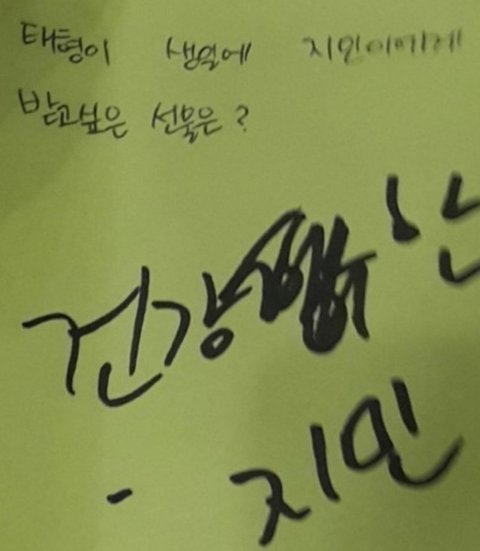 태형이 생일에 지민이에게
받고싶은 선물은?
건강한
- 지민